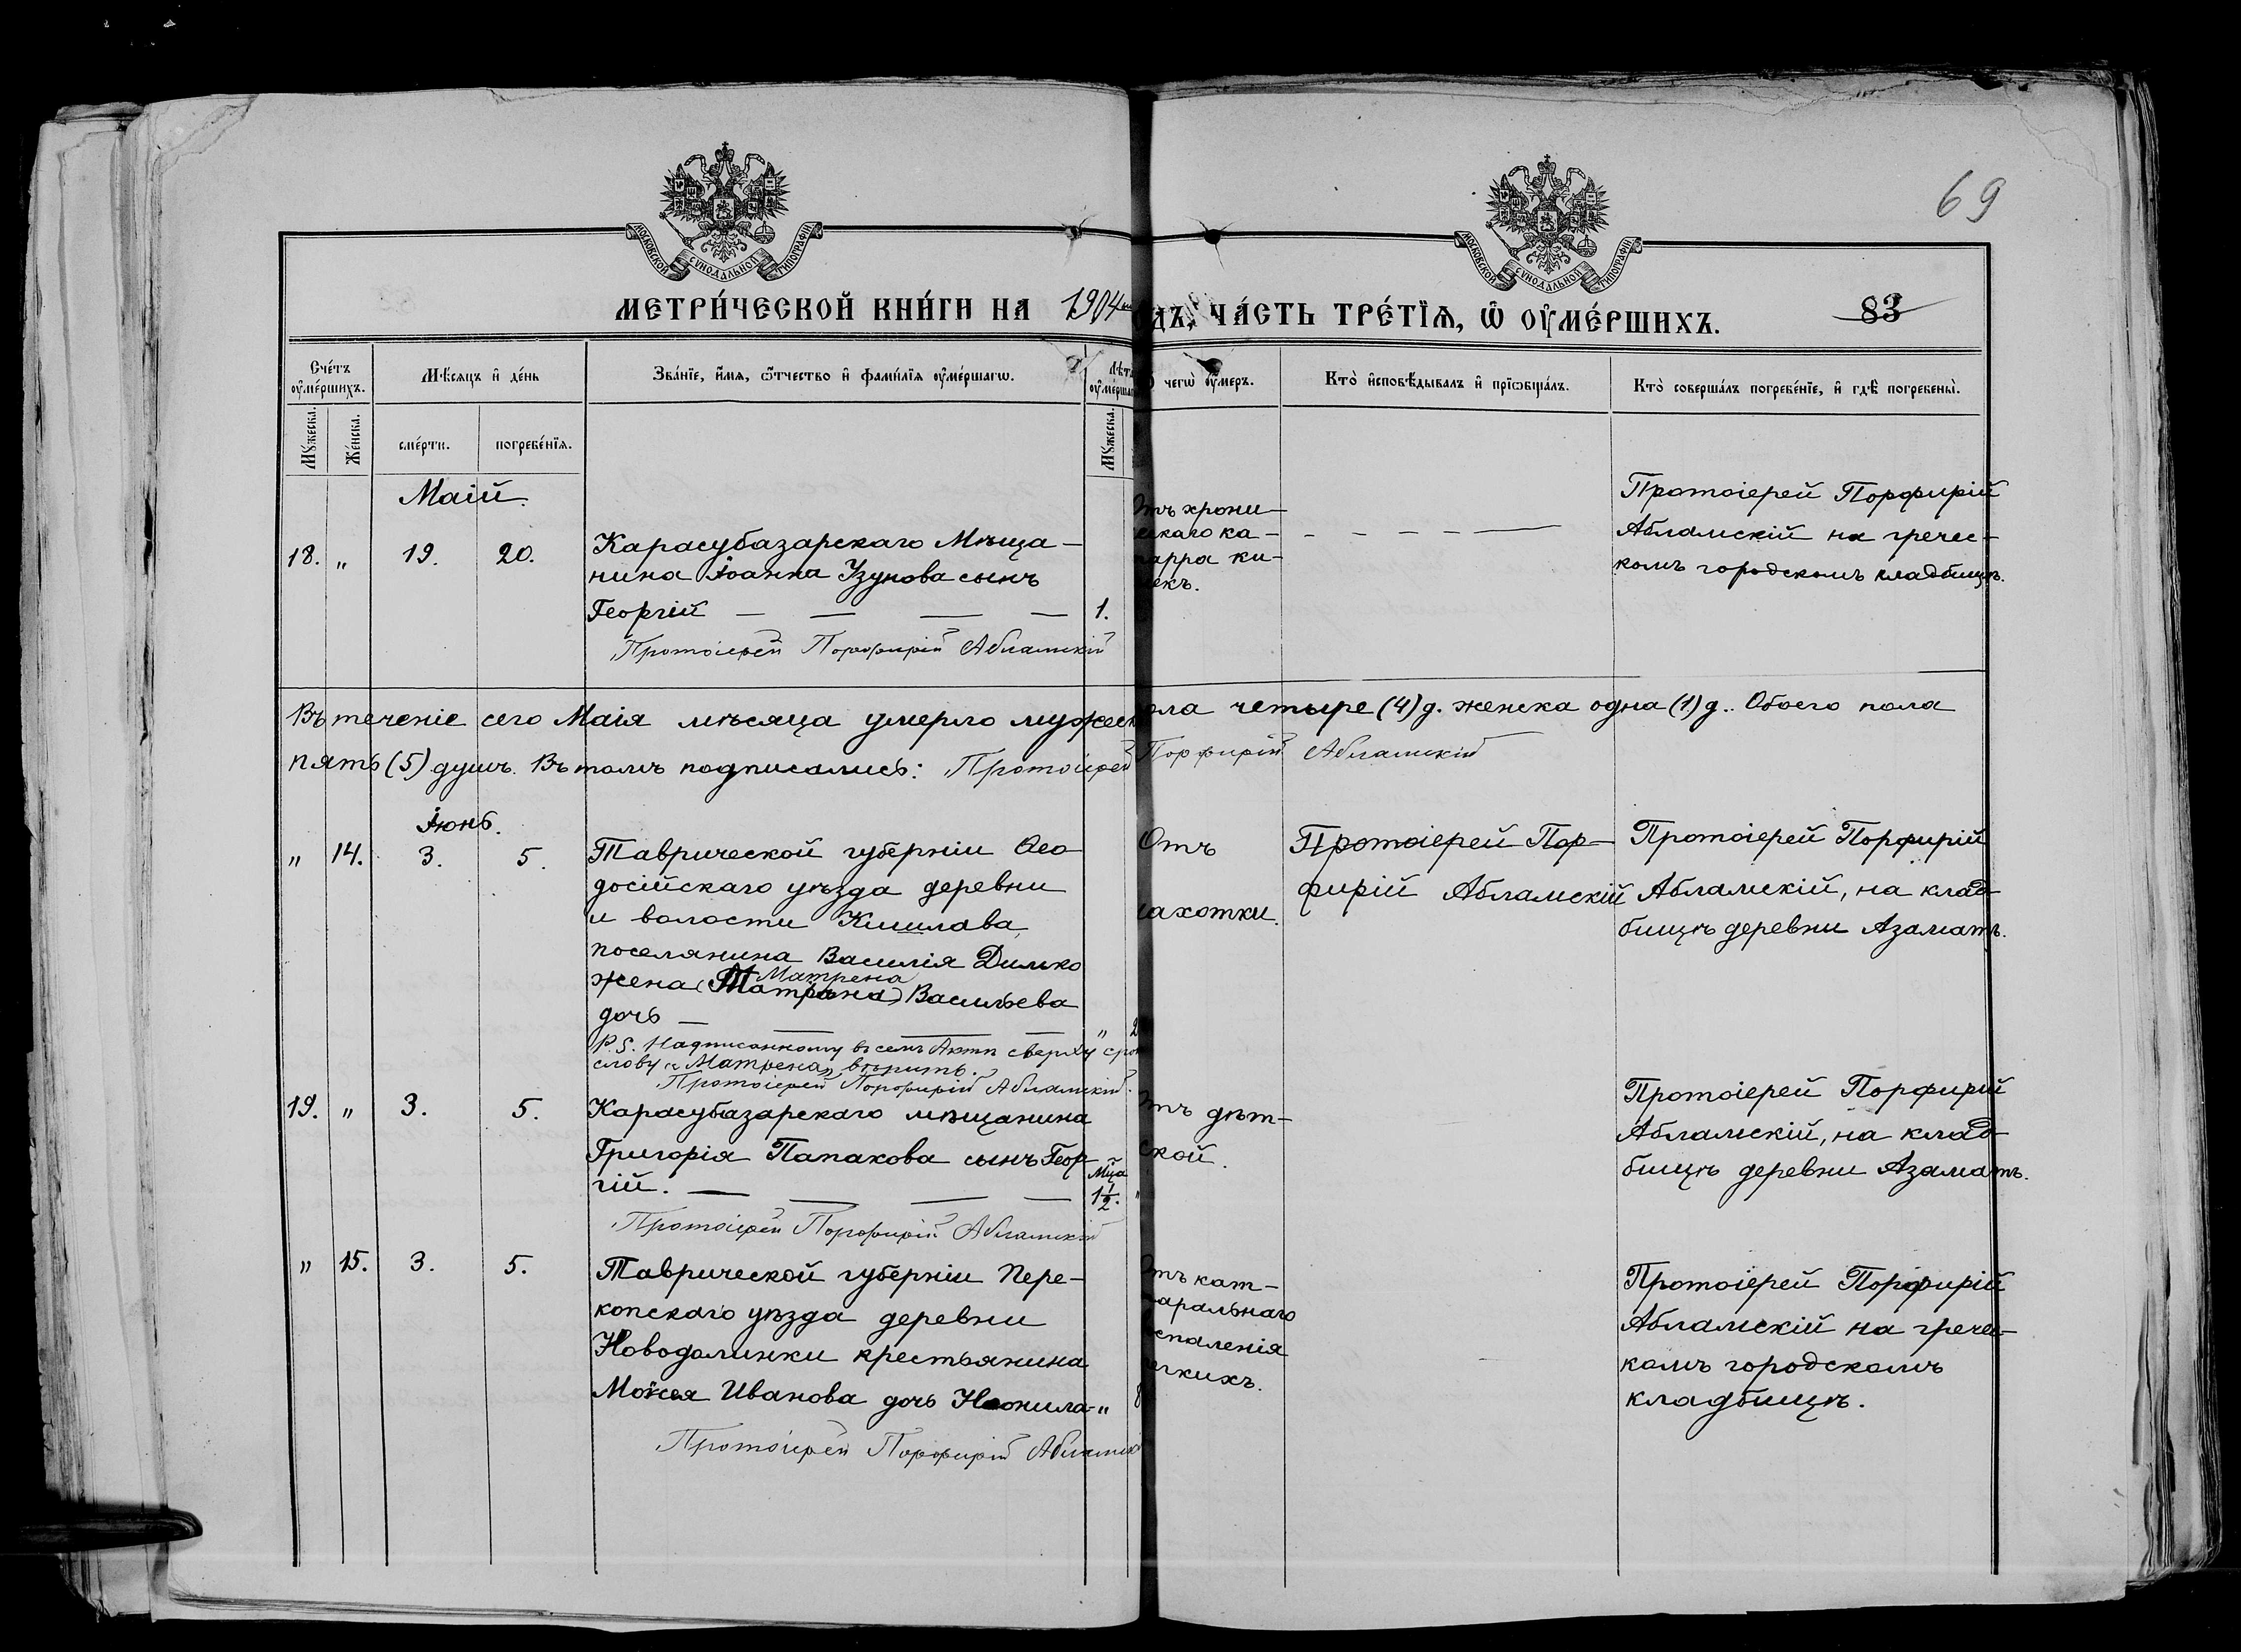 69
МОСКОВСКОЙ СѴНОДАЛЬНОЙ ТИПОГРАФІИ
МОСКОВСКОЙ СѴНОДАЛЬНОЙ ТИПОГРАФІИ
МЕТРИ́ЧЕСКОЙ КНИ́ГИ НА 1904
ДЪ, ЧА́СТЬ ТРЕ́ТЇѦ, Ѡ҆ ОУ҆МЕ́РШИХЪ.
83
Сче́тъ оу҆ме́ршихъ.
Мѣ́сяцъ и҆ де́нь
Зва́нїе, и҆́мя, ѻ҆́тчество и҆ фами́лїя оу҆ме́ршагѡ.
Лѣт оу҆ме́рша
чегѡ̀ оу҆́меръ.
Кто̀ и҆сповѣ́дывалъ и҆ прїѡбща́лъ.
Кто̀ соверша́лъ погребе́нїе, и҆ гдѣ̀ погребены̀.
Мꙋ́жеска.
Же́нска.
сме́рти.
погребе́нїя.
Мꙋ́жеска.
Маій.
18. „ 19. 20.
Карасубазарскаго Мѣща-
нина Іоанна Узунова сынъ
Георгій — — — — 1.
Протоіерей Порфирій Абламскій
тъ хрони-
ческаго ка-
тарра ки-
шекъ.
Протоіерей Порфирій
Абламскій на гречес-
комъ городскомъ кладбищѣ.
Въ теченіе сего Маія мѣсяца умерло мужеск ола четыре (4) д. женска одна (1) д.. Обоего пола
пять (5) душъ. Въ томъ подписались: Протоіерей Порфирій Абламскій
Іюнь.
„ 14. 3. 5.
Таврической губерніи Ѳео
досійскаго уѣзда деревни
и волости Кишлава,
поселянина Василія Димко
Матрена
жена (Матрона) Васильева
дочь — „ 2
P.S. Надписанному въ семъ Актѣ сверху
слову „Матрена„ вѣрить.
Протоіерей Порфирій Абламскій.
Отъ
чахотки.
Протоіерей Пор-
фирій Абламскій
Протоіерей Порфирій
Абламскій, на клад-
бищѣ деревни Азаматъ.
19. „ 3. 5.
Карасубазарскаго мѣщанина
Григорія Папакова сынъ Геор
гій. — — — — Мца 1½. „
Протоіерей Порфирій Абламскій
тъ дѣт-
ской.
Протоіерей Порфирій
Абламскій, на клад-
бищѣ деревни Азаматъ.
„ 15. 3. 5.
Таврической губерніи Пере-
копскаго уѣзда деревни
Новодолинки крестьянина
Моисея Иванова дочь Неонила- „ 8
Протоіерей Порфирій Абламскі
тъ кат-
аральнаго
воспаленія
егкихъ.
Протоіерей Порфирій
Абламскій на гречес-
комъ городскомъ
кладбищѣ.